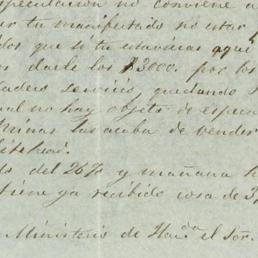 especulacion no conviene a
tu manifestado no estar
que si tu estuvieras aqui
darte los $3000. por los
servicios, quedando
no hay objeto de
Minas las acaba de vender

del 26 y mañana
tiene ya recibido cosa de 3
Ministerio de Hacda el Sor.